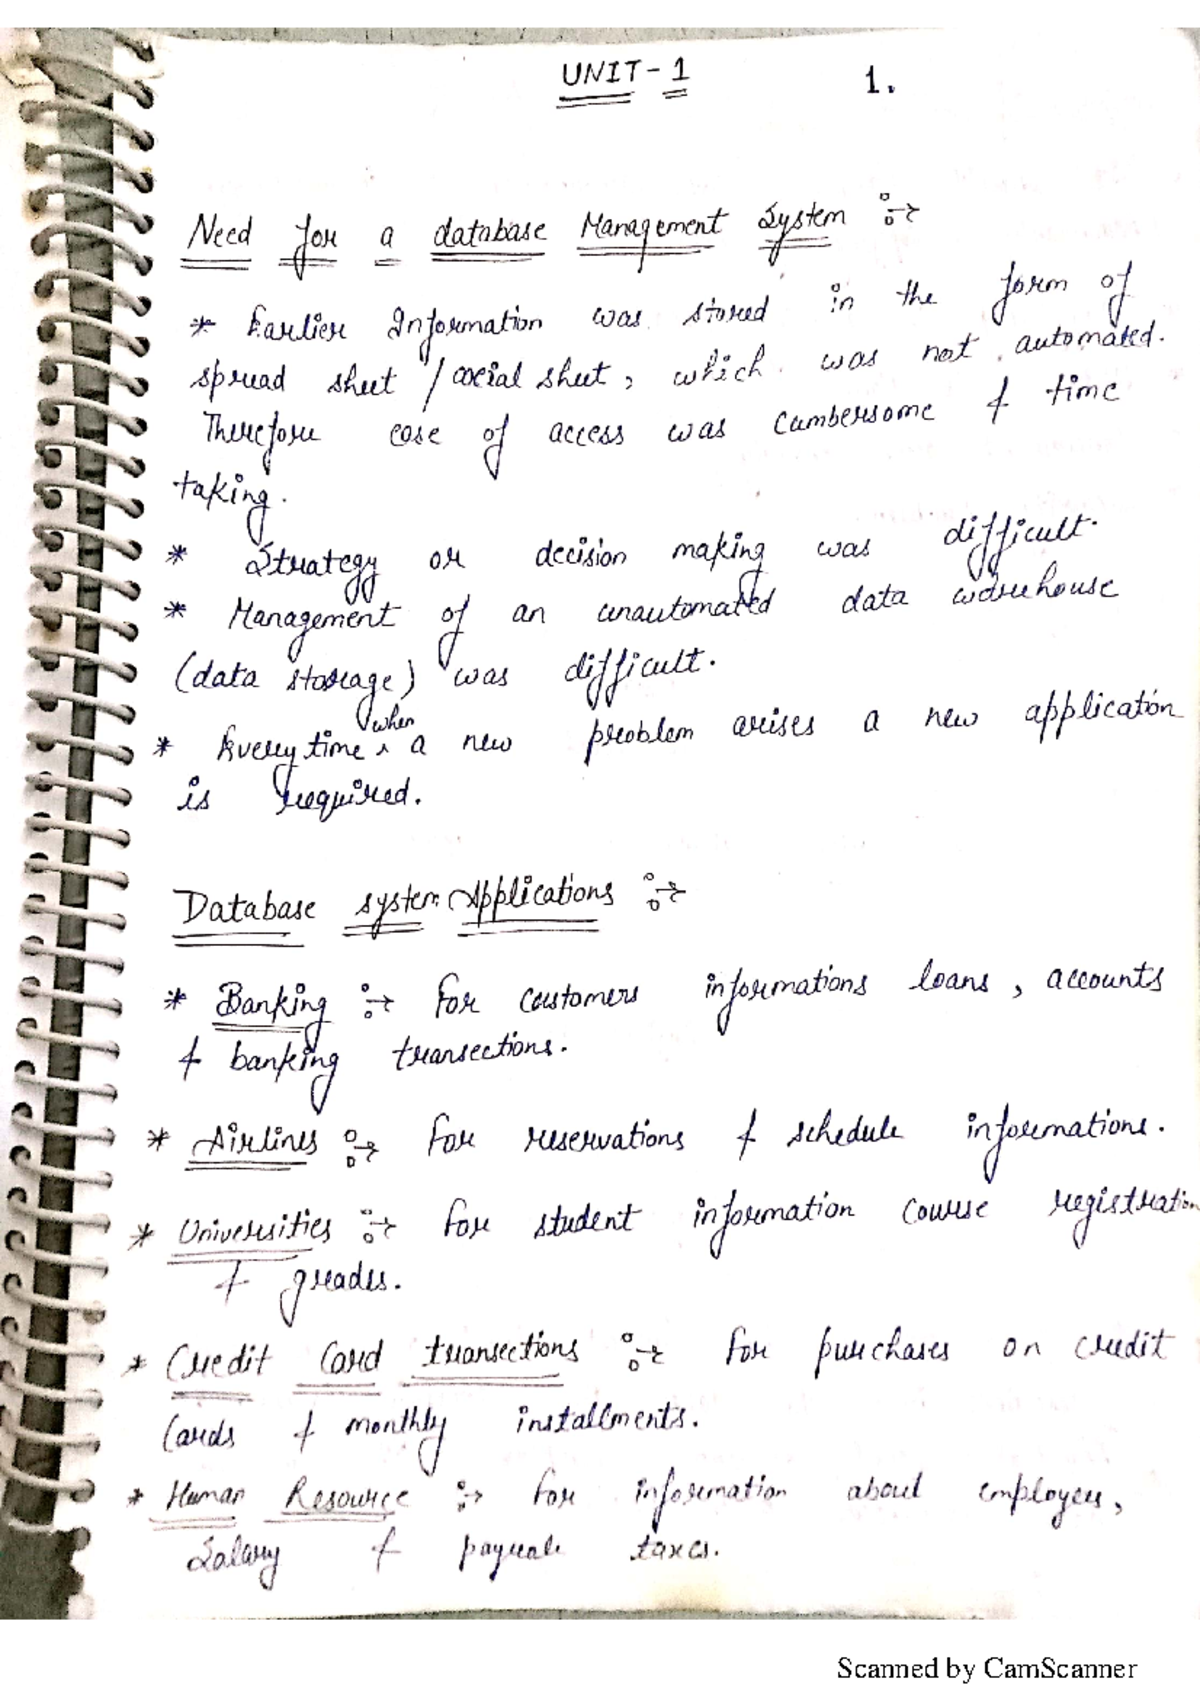 UNIT-1 1.
Need for a database Management System :→
* Earlier Information was stored in the form of
spread sheet / social sheet, which was not automated.
Therefore ease of access was cumbersome & time
taking.
* Strategy or decision making was difficult.
* Management of an unautomated data warehouse
(data storage) was difficult.
* Every time when a new problem arises a new application
is required.
Database system Applications :→
* Banking :→ For customers informations loans, accounts
& banking transections.
* Airlines :→ For reservations & schedule informations.
* Universities :→ For student information course registration
& grades.
* Credit Card transections :→ For purchases on credit
Cards & monthly installments.
* Human Resource :→ For information about employees,
Salary & payrole taxes.
Scanned by CamScanner